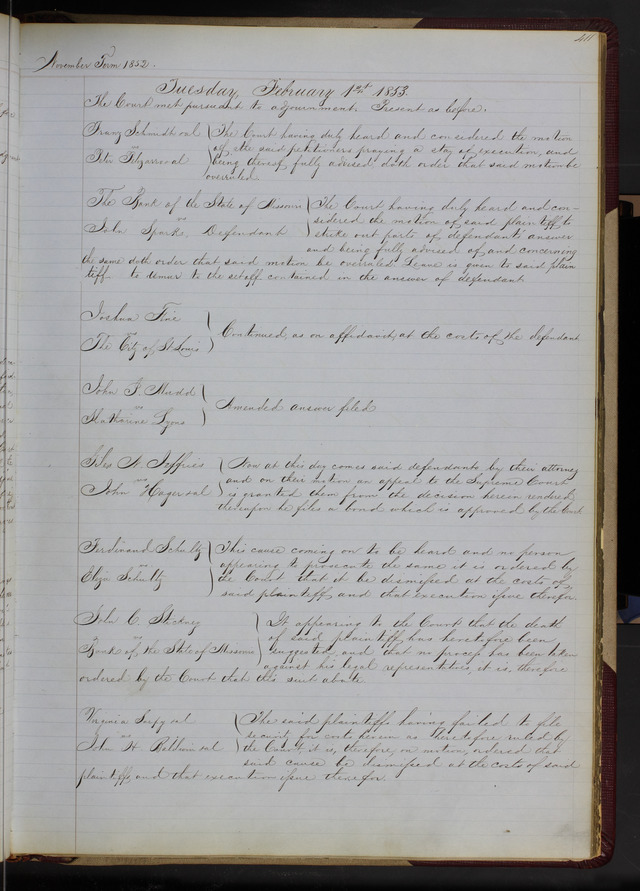 411
November Term 1852.
Tuesday February 1st 1853
The Court met pursuant to adjournment. Present as before.
Franz Schmidt et al
vs
Peter et al
The Court having duly heard and considered the motion
of the said petitioners praying a stay of execution, and
being thereof fully advised doth order that said motion be
overruled
The Bank of the State of Missouri
vs
John Spark, Defendant
The Court having duly heard and con-
sidered the motion of said plaintiff to
strike out parts of defendants answer
and being fully advised of and concerning
the same doth order that said motion be overruled Leave is given to said plain
tiff to demur to the setoff contained in the answer of defendant
Joshua Fine
vs
The City of St Louis
Continued, as on affidavit, at the costs of the defendant
John F. Mudd
vs
Katharine Lyons
Amended answer filed
A. Jeffries
vs
John Hager et al
Now at this day comes said defendants by their attorney
and on their motion an appeal to the Supreme Court
is granted them from the decision herein rendered,
thereupon he files a bond which is approved by the Court
Ferdinand Schultz
vs
Eliza Schultz
This cause coming on to be heard and no person
appearing to prosecute the same it is ordered by
the Court that it be dismissed at the costs of
said plaintiff and that execution issue therefor.
John C. Stickney
vs
Bank of the State of Missouri
It appearing to the Court that the death
of said plaintiff has heretofore been
suggested, and that no process has been taken
against his legal representatives, it is, therefore
ordered by the Court that this suit abate
Virginia et al
vs
John H. Baldwin et al
The said plaintiffs having failed to file
security for costs herein as heretofore ruled by
the Court, it is, therefore, on motion, ordered that
said cause be dismissed at the costs of said
plaintiffs, and that execution issue therefor.